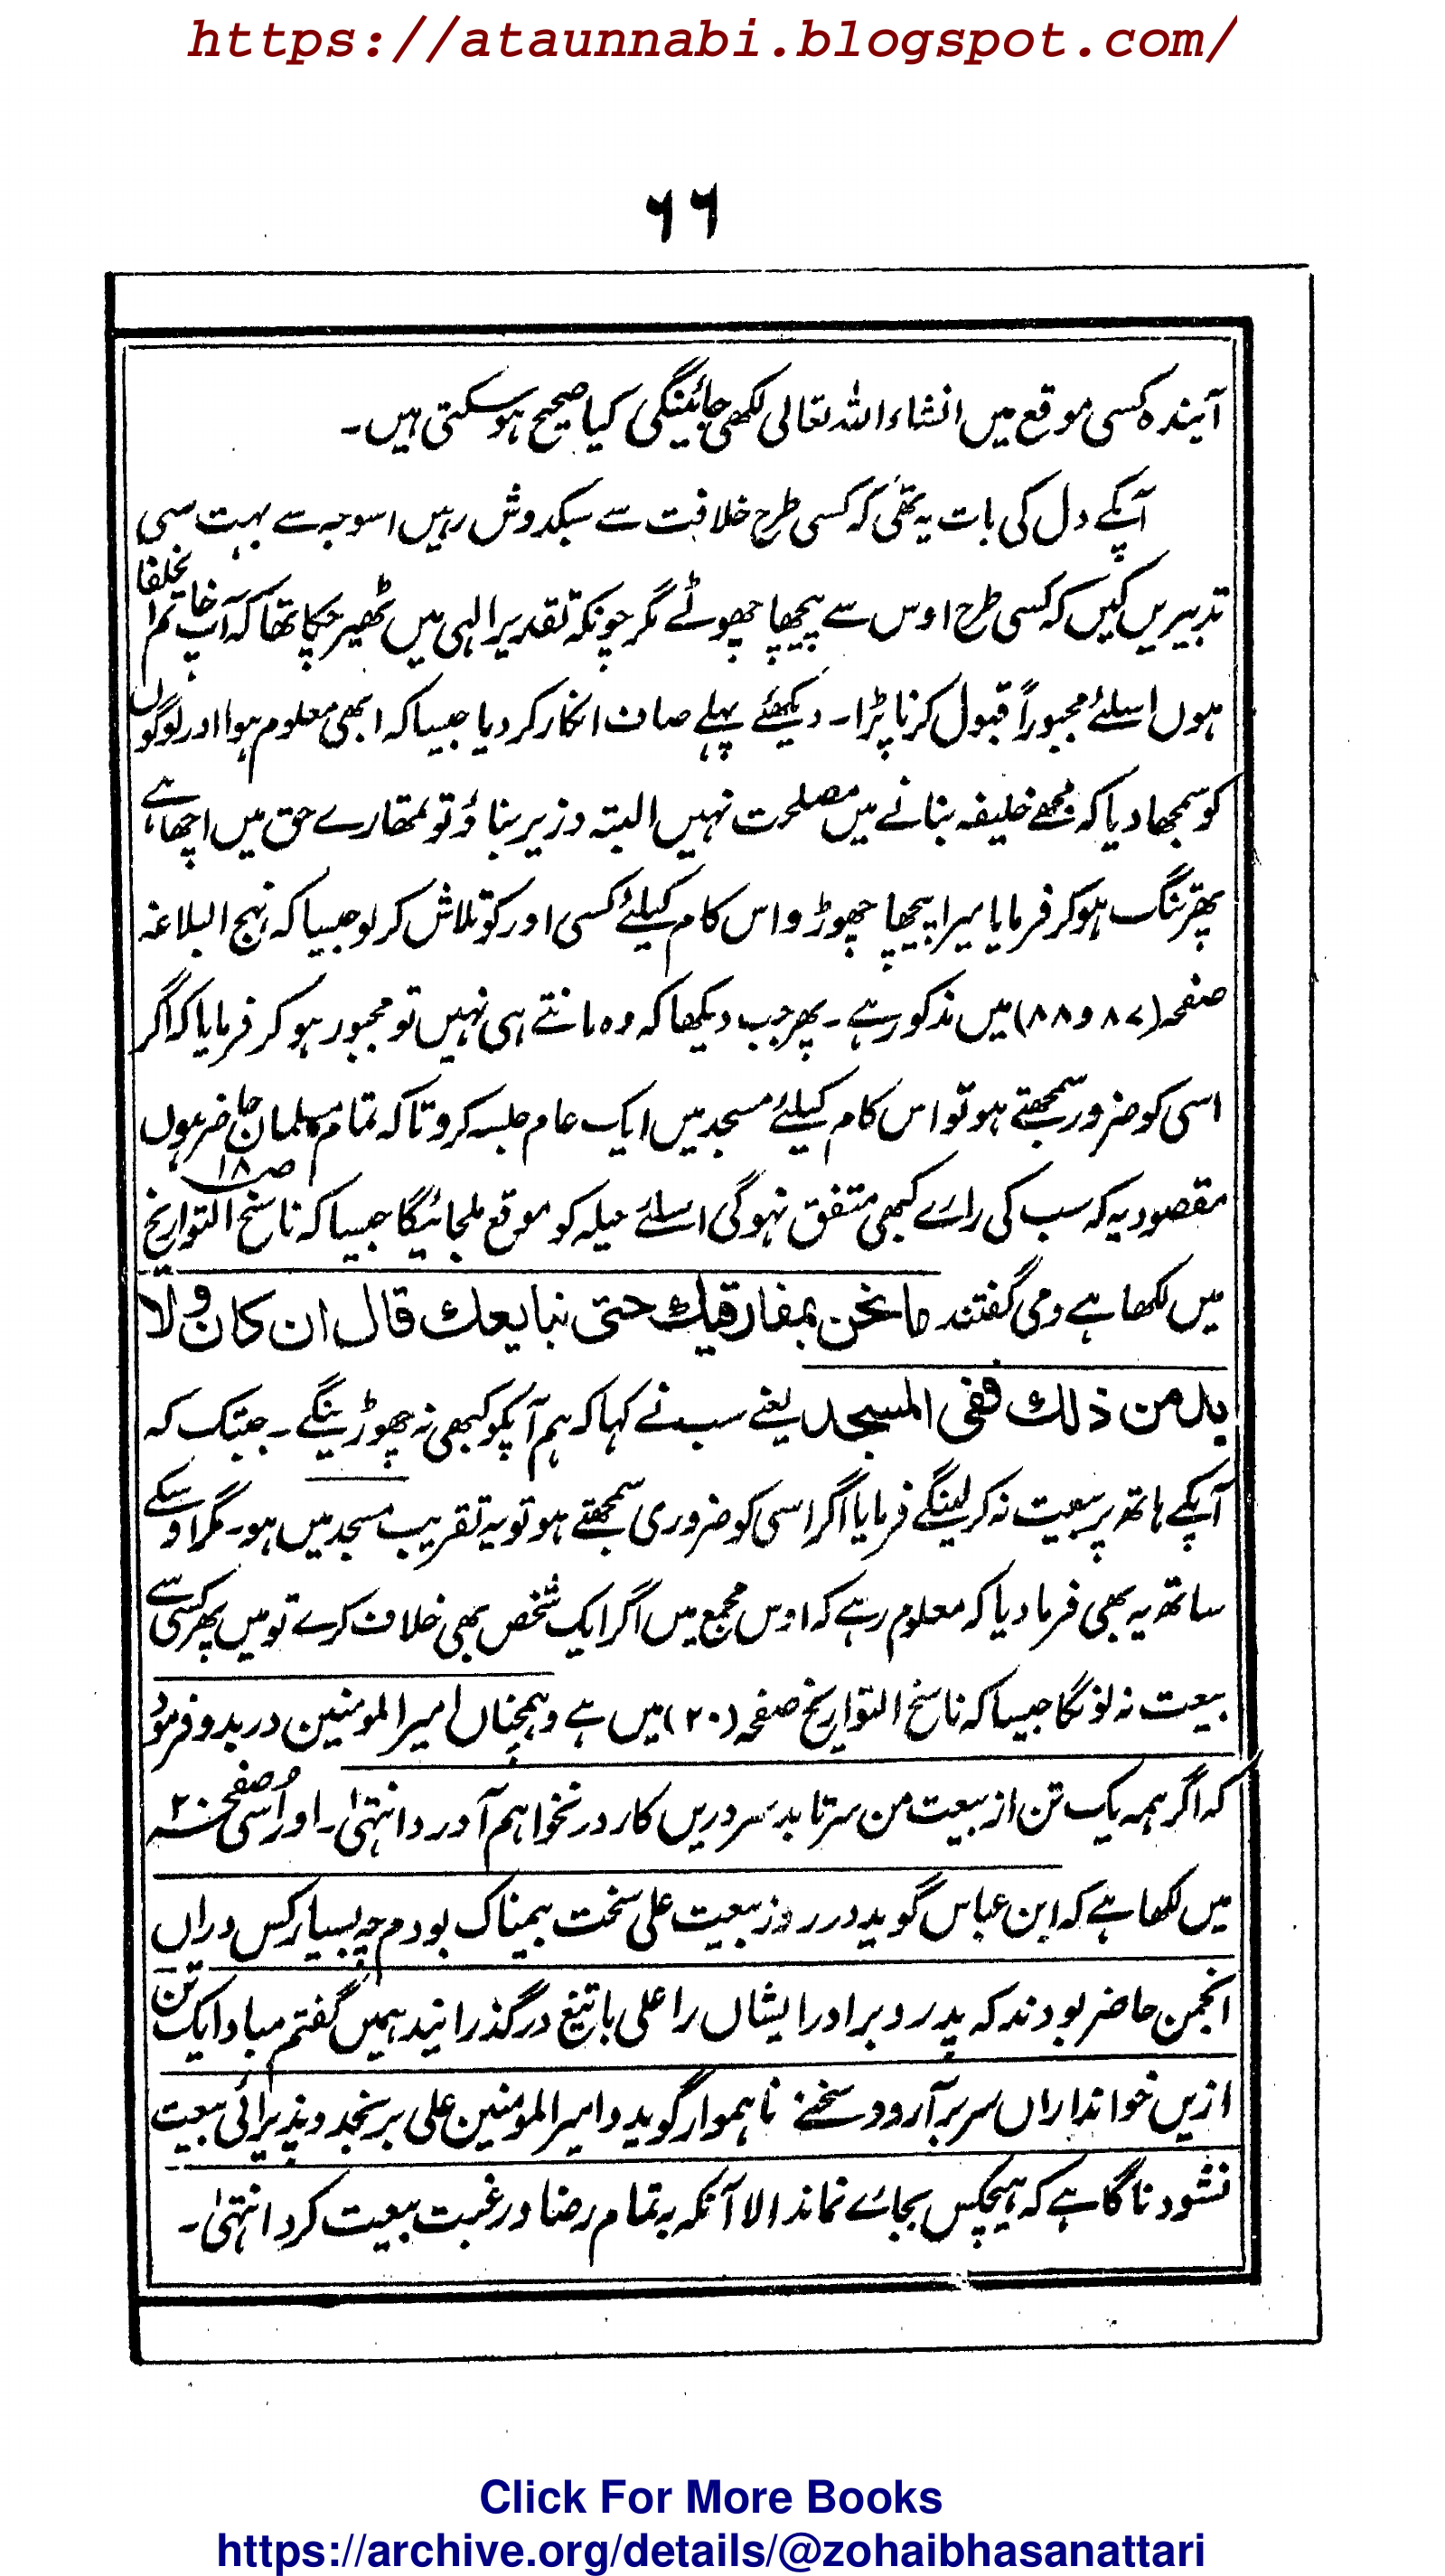 https://ataunnabi.blogspot.com/
۶۶
آیندہ کسی موقع میں انشاء اللہ تعالی لکھی جائینگی کیا صحیح ہو سکتی ہیں۔
آپکے دل کی بات یہ تھی کہ کسی طرح خلافت سے سبکدوش رہیں اسوجہ سے بہت سی
تدبیریں کیں کہ کسی طرح اوس سے پیچھا چھوٹے مگر چونکہ تقدیر الہی میں ٹھیر چکا تھا کہ آپ خاتم الخلفا
ہوں اسلئے مجبوراً قبول کرنا پڑا۔ دیکھئے پہلے صاف انکار کر دیا جیسا کہ ابھی معلوم ہوا اور لوگوں
کو سمجھا دیا کہ مجھے خلیفہ بنانے میں مصلحت نہیں البتہ وزیر بناؤ تو تمھارے حق میں اچھا ہے
پھر تنگ ہو کر فرمایا میرا پیچھا چھوڑو اس کام کیلئے کسی اور کو تلاش کر لو جیسا کہ نہج البلاغہ
صفحہ (۸۷ و ۸۸) میں مذکور ہے۔ پھر جب دیکھا کہ وہ مانتے ہی نہیں تو مجبور ہو کر فرمایا کہ اگر
اسی کو ضرور سمجھتے ہو تو اس کام کیلئے مسجد میں ایک عام جلسہ کرو تاکہ تمام مسلمان حاضر ہوں
مقصود یہ کہ سب کی رائے کبھی متفق نہوگی اسلئے حیلہ کو موقع ملجائیگا جیسا کہ ناسخ التواریخ ص ۱۸
میں لکھا ہے ومی گفتند ما نحن بمفارقیك حتی نبایعك قال ان كان ولا
بد من ذلك ففی المسجد یعنے سب نے کہا کہ ہم آپکو کبھی نہ چھوڑینگے۔ جبتک کہ
آپکے ہاتھ پر بیعت نہ کر لینگے فرمایا اگر اسی کو ضروری سمجھتے ہو تو یہ تقریب مسجد میں ہو۔ مگر اوسکے
ساتھ یہ بھی فرما دیا کہ معلوم رہے کہ اوس مجمع میں اگر ایک شخص بھی خلاف کرے تو میں پھر کسی سے
بیعت نہ لونگا جیسا کہ ناسخ التواریخ صفحہ (۲۰) میں ہے وہمچناں امیر المومنین در بدو فرمود
کہ اگر ہمہ یک تن از بیعت من سر تا بد سر دریں کار در نخواہم آورد انتہیٰ۔ اور اُسی صفحہ ۲۰
میں لکھا ہے کہ ابن عباس گوید در روز بیعت علی سخت بیمناک بودم چہ بسیار کس دراں
انجمن حاضر بودند کہ پدر و برادر ایشاں را علی با تیغ درگذرانید ہمیں گفتم مبادا یک تن
ازیں خوانداراں سر بر آرد و سخنے ناہموار گوید و امیر المومنین علی برنجد و پذیرائی بیعت
نشود ناگاہے کہ ہیچکس بجائے نماند الا آنکہ بہ تمام رضا و رغبت بیعت کرد انتہیٰ۔
Click For More Books
https://archive.org/details/@zohaibhasanattari